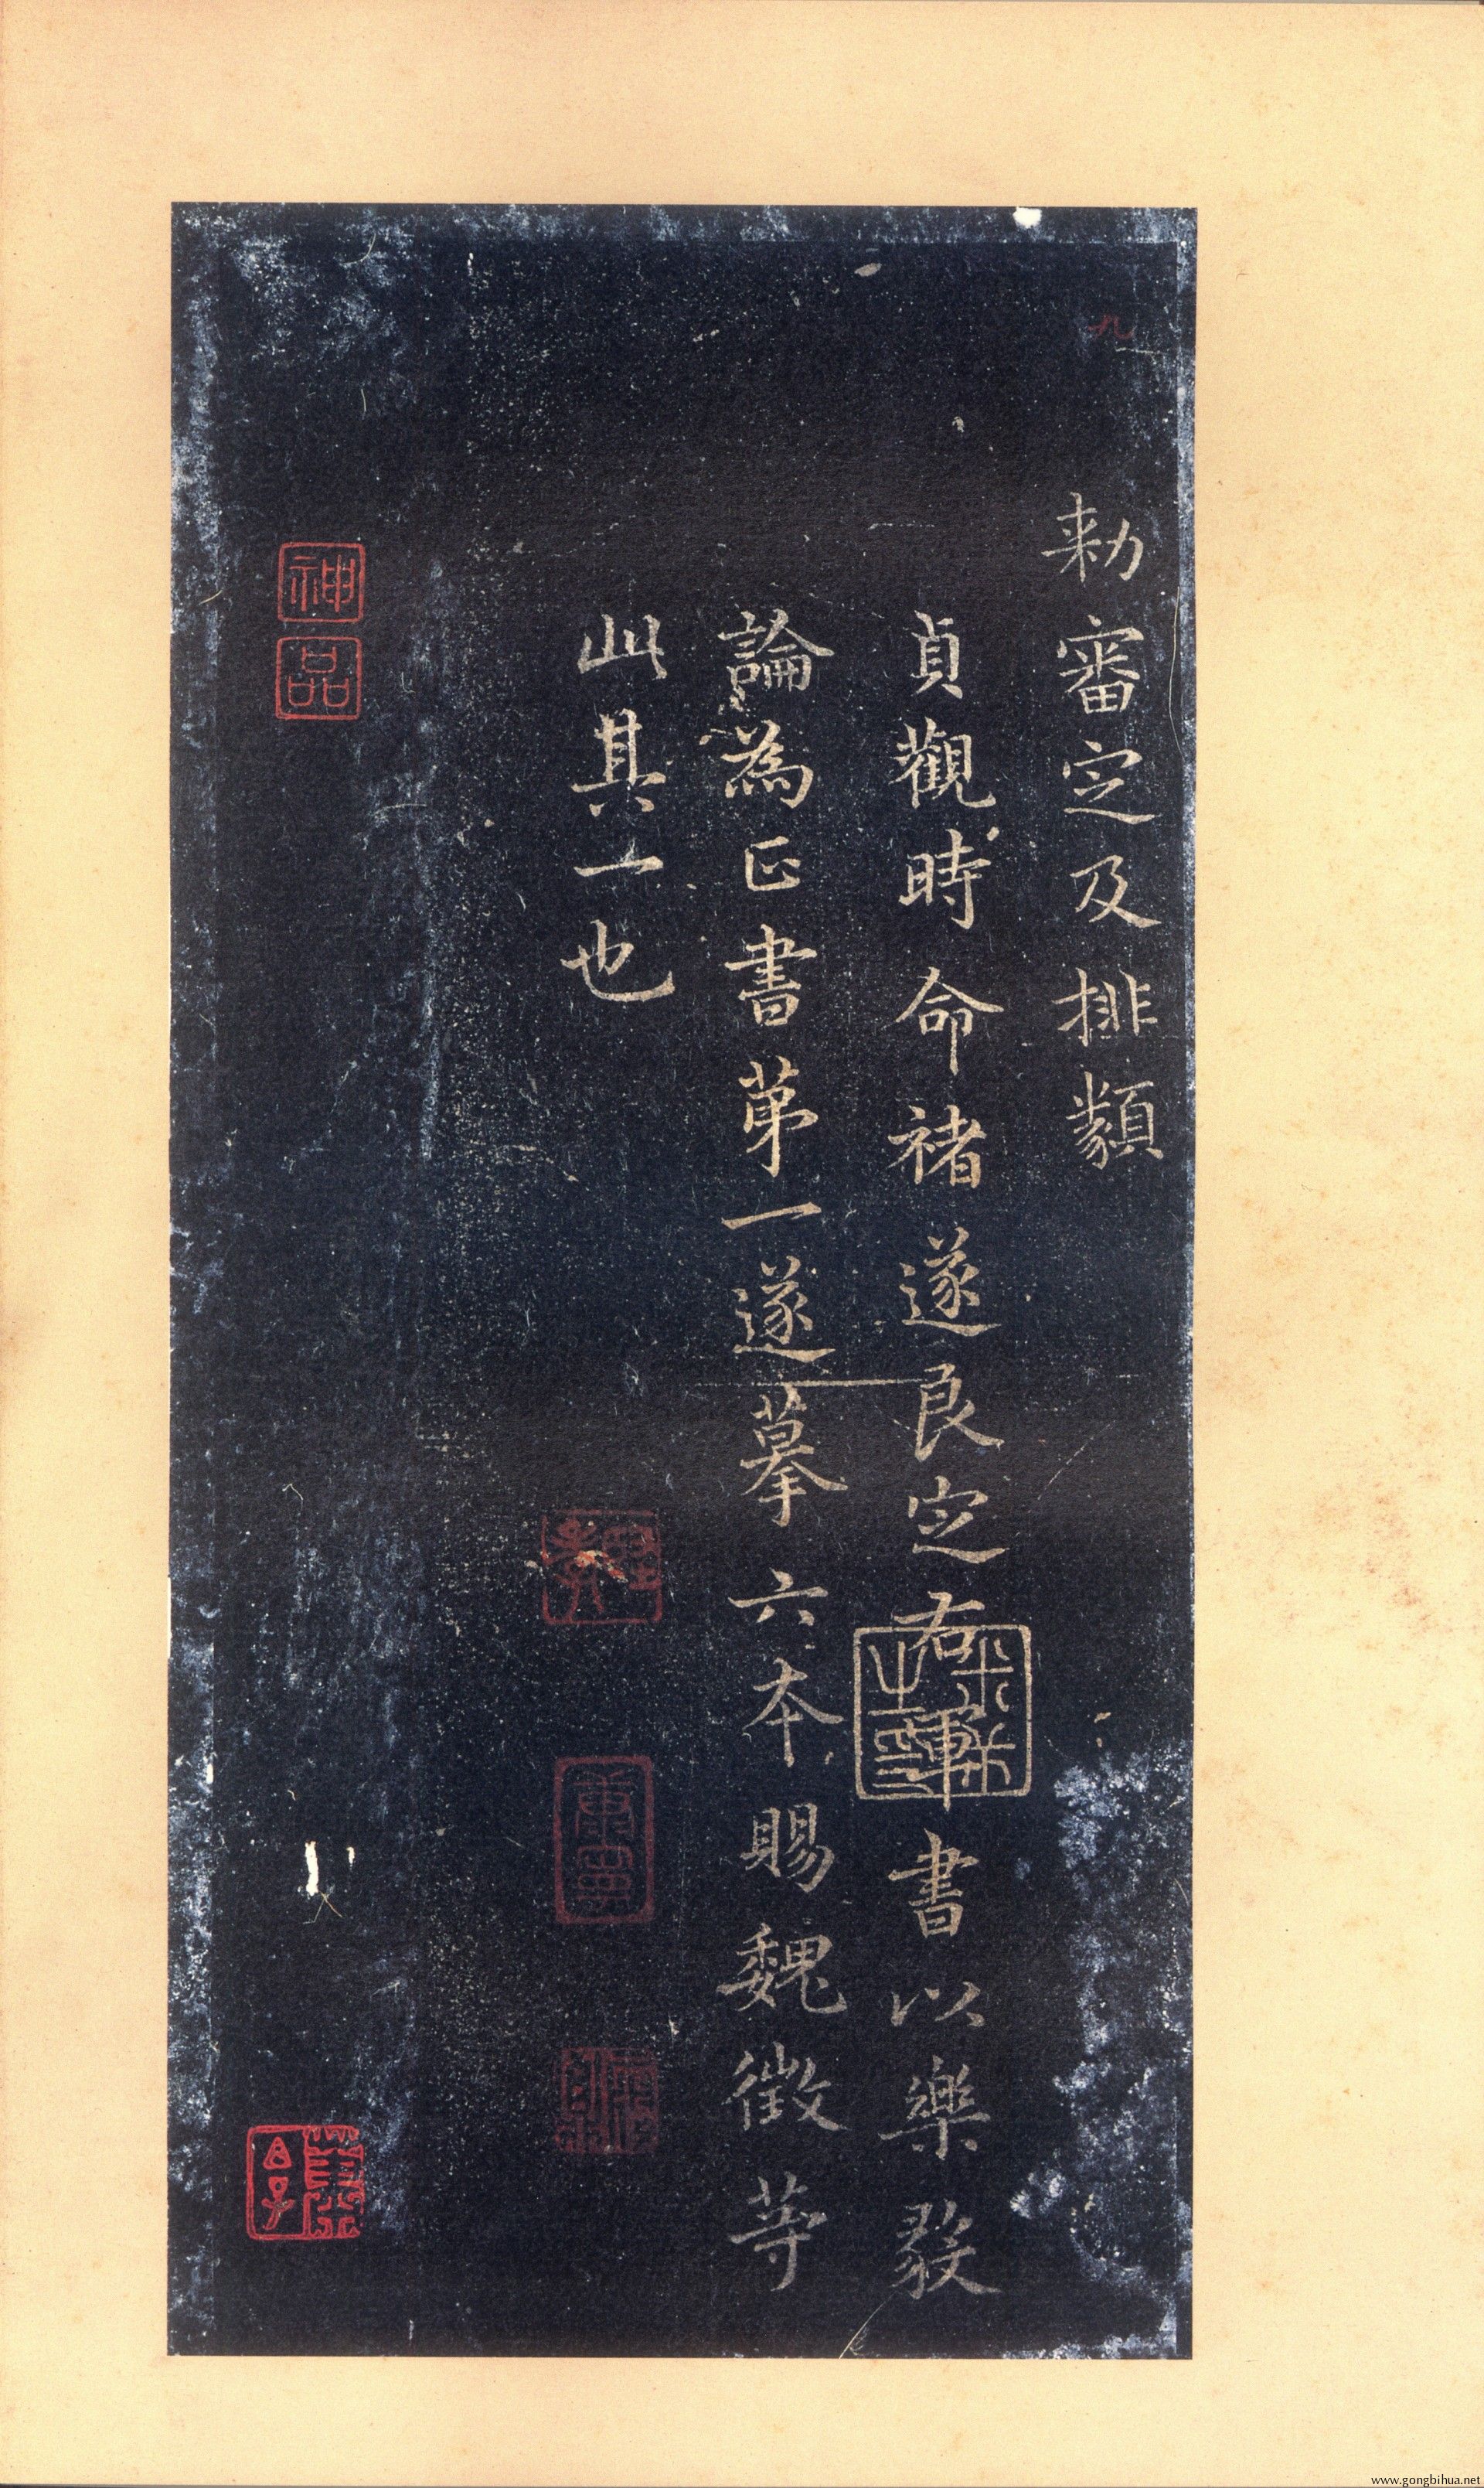 勑審定及排類
貞觀時命褚遂良定右軍書以樂毅
論為正書第一遂摹六本賜魏徵等
此其一也
神
品
九
www.gongbihua.net